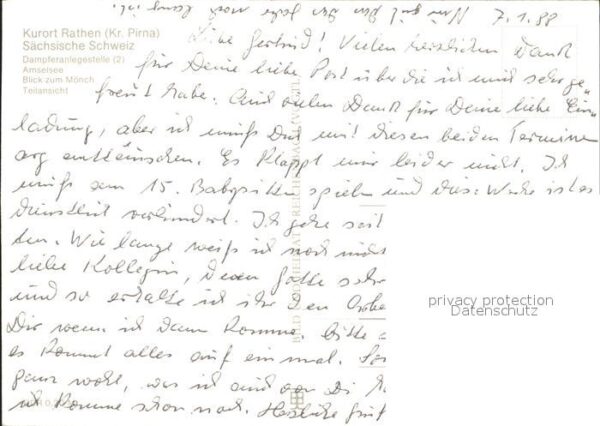 Kurort Rathen (Kr. Pirna)
Sächsische Schweiz
Dampferanlegestelle (2)
Amselsee
Blick zum Mönch
Teilansicht
7.1.88
Liebe Gertrud! Vielen herzlichen Dank
für Deine liebe Post über die ich mich sehr ge-
freut habe. Und vielen Dank für Deine liebe Ein-
ladung, aber ich muß Dich mit diesen beiden Terminen
arg enttäuschen. Es klappt mir leider nicht. Ich
muß am 15. Babysitten spielen und das: Woche ist es
dienstlich verhindert. Ich gehe seit
ten. Wie lange weiß ich noch nicht
liebe Kollegin, deren Gatte sehr
und so erhalte ich ihr den
Dir wenn ich dann komme. Bitte
es kommt alles auf einmal.
ganz wohl, was ich auch von Di
ich komme schon noch. Herzliche
privacy protection
Datenschutz